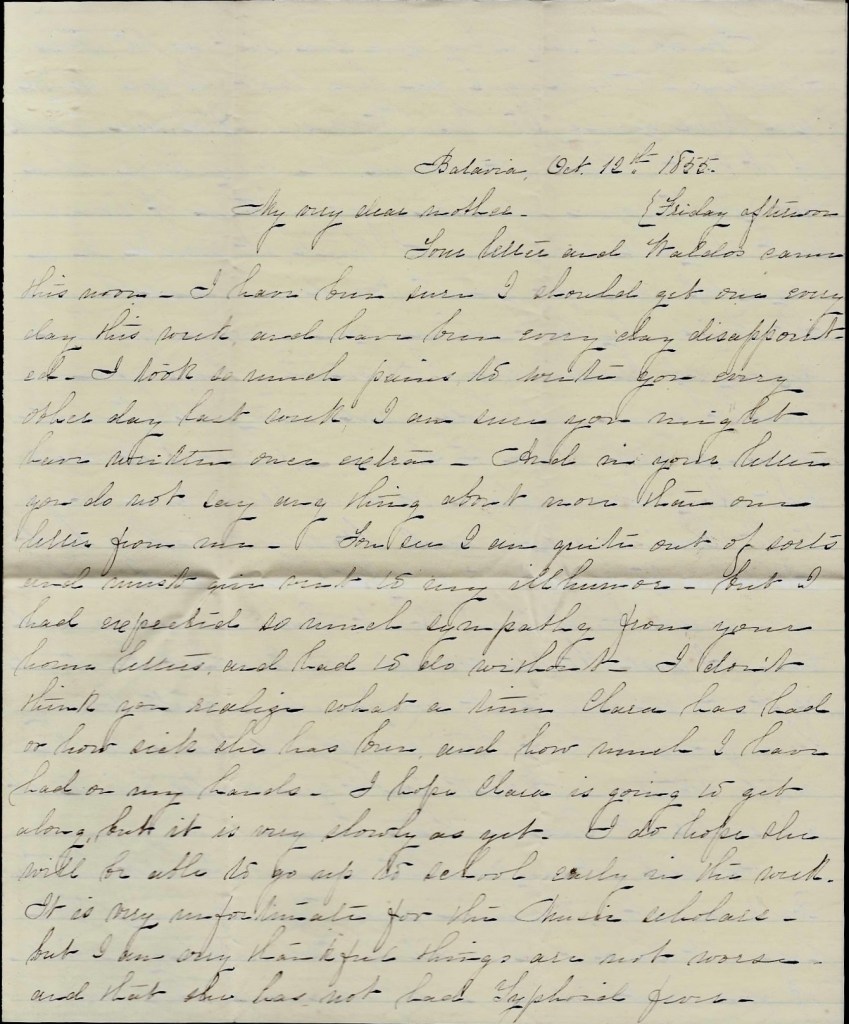 Batavia, Oct. 12th 1855.
My very dear mother - {Friday afternoon
Your letter and Waldos came
this noon - I have been sure I should get one every
day this week, and have been every day disappoint-
ed - I took so much pains to write you every
other day last week, I am sure you might
have written once extra - And in your letter
you do not say any thing about more than one
letter from me - You see I am quite out of sorts
and must give vent to my ill humor - but I
had expected so much sympathy from your
home letters, and had to do without - I don't
think you realize what a time Clara has had
or how sick she has been, and how much I have
had on my hands - I hope Clara is going to get
along, but it is very slowly as yet - I do hope she
will be able to go up to school early in the week.
It is very unfortunate for the Music scholars -
but I am very thankful things are not worse -
and that she has not had Typhoid fever -